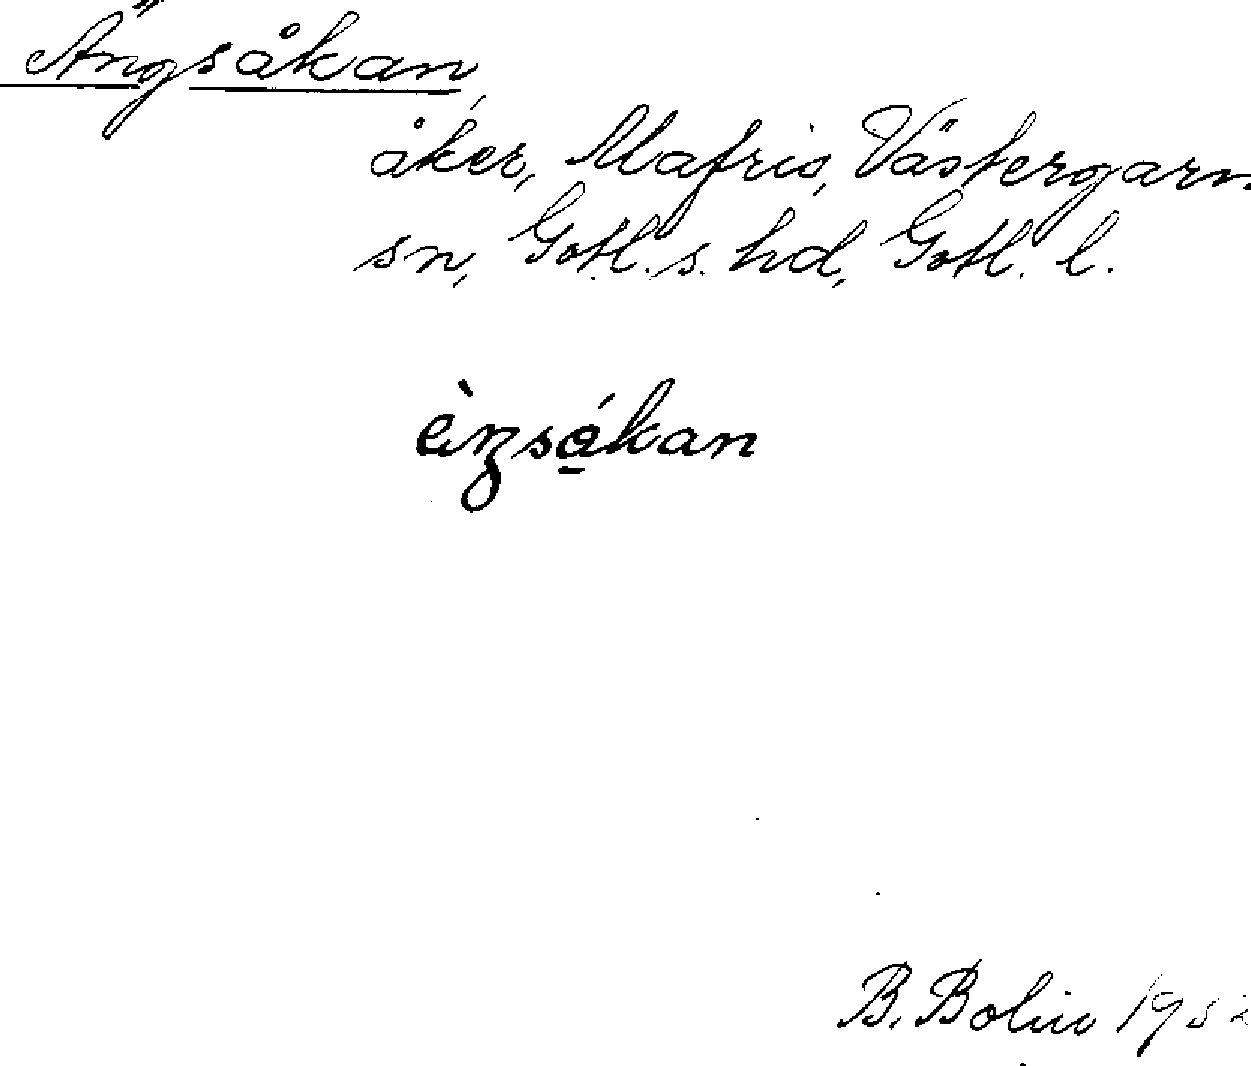 Ängsåkan,
åker, Mafrids, Västergarn
sn, Gotl. s. hd, Gotl. l.
B. Bolin 1952